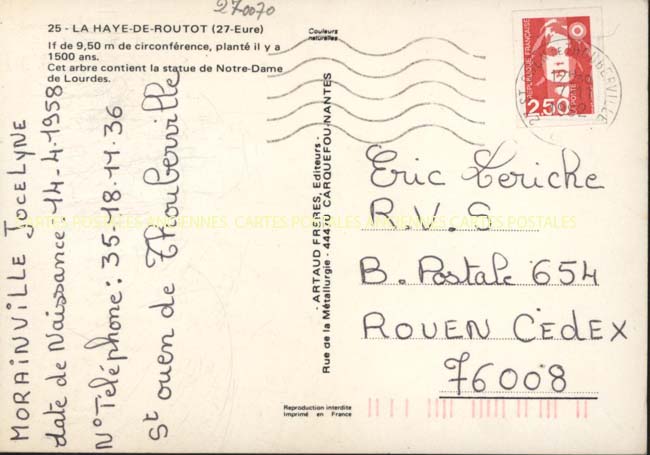 270070
25 - LA HAYE-DE-ROUTOT (27-Eure)
If de 9,50 m de circonférence, planté il y a
1500 ans.
Cet arbre contient la statue de Notre-Dame
de Lourdes.
Couleurs
naturelles
MORAINVILLE JOCELYNE
date de Naissance: 14-4-1958
N° Téléphone: 35.18.11.36
St ouen de Thouberville
- ARTAUD FRÈRES, Editeurs -
Rue de la Métallurgie - 44470 CARQUEFOU-NANTES
RÉPUBLIQUE FRANÇAISE
2,50
LA POSTE
Eric Leriche
R.V.S
B. Postale 654
ROUEN CEDEX
76008
Reproduction interdite
Imprimé en France
CARTES POSTALES ANCIENNES CARTES POSTALES ANCIENNES CARTES POSTALES